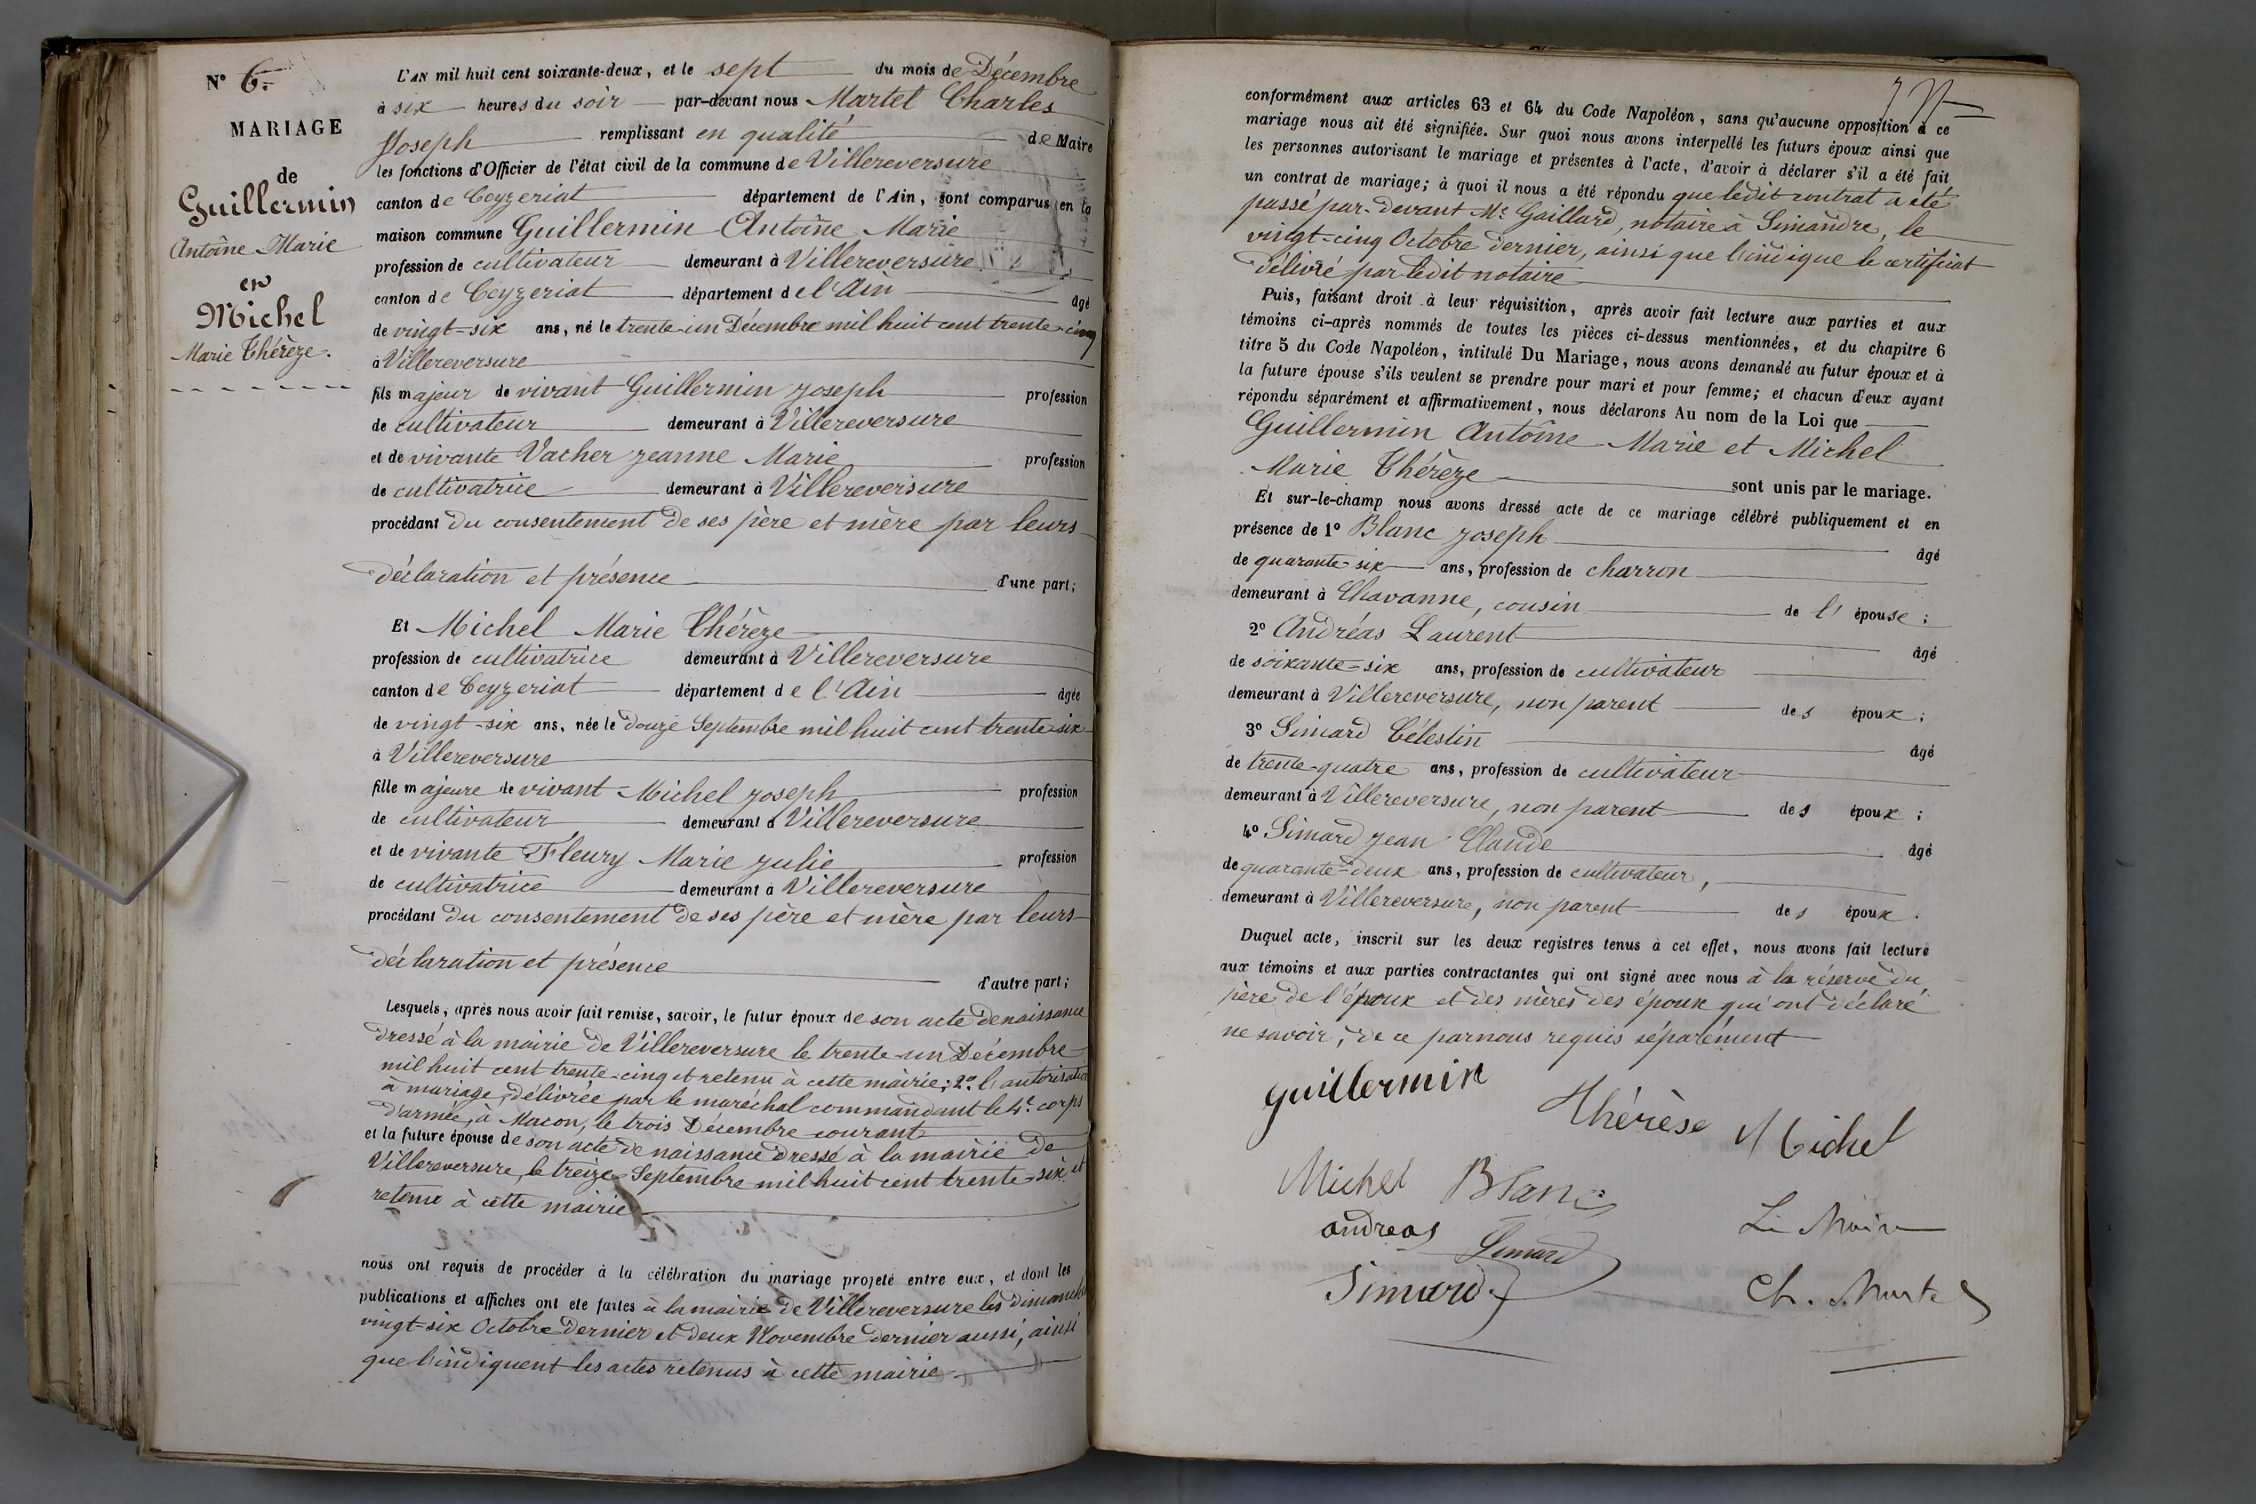 N° 6.
MARIAGE
de
Guillermin
Antoîne Marie
et
Michel
Marie Thérèze.
L'AN mil huit cent soixante-deux, et le sept du mois de Décembre
à six heures du soir par-devant nous Martel Charles
Joseph remplissant en qualité de Maire
les fonctions d'Officier de l'état civil de la commune de Villereversure
canton de Ceyzeriat département de l'Ain, sont comparus en la
maison commune Guillermin Antoîne Marie
profession de cultivateur demeurant à Villereversure
canton de Ceyzeriat département de l'Ain âgé
de vingt-six ans, né le trente-un Décembre mil huit cent trente-cinq
à Villereversure
fils majeur de vivant Guillermin Joseph profession
de cultivateur demeurant à Villereversure
et de vivante Vacher Jeanne Marie profession
de cultivatrice demeurant à Villereversure
procédant du consentement de ses père et mère par leurs
déclaration et présence d'une part;
Et Michel Marie Thérèze
profession de cultivatrice demeurant à Villereversure
canton de Ceyzeriat département de l'Ain âgée
de vingt-six ans, née le douze Septembre mil huit cent trente-six
à Villereversure
fille majeure de vivant Michel Joseph profession
de cultivateur demeurant à Villereversure
et de vivante Fleury Marie Julie profession
de cultivatrice demeurant à Villereversure
procédant du consentement de ses père et mère par leurs
déclaration et présence d'autre part;
Lesquels, après nous avoir fait remise, savoir, le futur époux de son acte de naissance
dressé à la mairie de Villereversure le trente-un Décembre
mil huit cent trente-cinq et retenu à cette mairie; 2° l'autorisation
à mariage, délivrée par le maréchal commandant le 4e corps
d'armée, à Macon, le trois Décembre courant
et la future épouse de son acte de naissance dressé à la mairie de
Villereversure, le treize Septembre mil huit cent trente-six et
retenu à cette mairie
nous ont requis de procéder à la célébration du mariage projeté entre eux, et dont les
publications et affiches ont été faites à la mairie de Villereversure les dimanches
vingt-six Octobre dernier et deux Novembre dernier aussi, ainsi
que l'indiquent les actes retenus à cette mairie
conformément aux articles 63 et 64 du Code Napoléon, sans qu'aucune opposition à ce
mariage nous ait été signifiée. Sur quoi nous avons interpellé les futurs époux ainsi que
les personnes autorisant le mariage et présentes à l'acte, d'avoir à déclarer s'il a été fait
un contrat de mariage; à quoi il nous a été répondu que ledit contrat a été
passé par-devant Me Gaillard, notaire à Simandre, le
vingt-cinq Octobre dernier, ainsi que l'indique le certificat
délivré par ledit notaire
Puis, faisant droit à leur réquisition, après avoir fait lecture aux parties et aux
témoins ci-après nommés de toutes les pièces ci-dessus mentionnées, et du chapitre 6
titre 5 du Code Napoléon, intitulé Du Mariage, nous avons demandé au futur époux et à
la future épouse s'ils veulent se prendre pour mari et pour femme; et chacun d'eux ayant
répondu séparément et affirmativement, nous déclarons Au nom de la Loi que
Guillermin Antoîne Marie et Michel
Marie Thérèze sont unis par le mariage.
Et sur-le-champ nous avons dressé acte de ce mariage célébré publiquement et en
présence de 1° Blanc Joseph âgé
de quarante-six ans, profession de charron
demeurant à Chavanne, cousin de l'épouse;
2° Andréas Laurent âgé
de soixante-six ans, profession de cultivateur
demeurant à Villereversure, non parent des époux;
3° Simard Célestin âgé
de trente-quatre ans, profession de cultivateur
demeurant à Villereversure, non parent des époux;
4° Simard Jean Claude âgé
de quarante-deux ans, profession de cultivateur,
demeurant à Villereversure, non parent des époux.
Duquel acte, inscrit sur les deux registres tenus à cet effet, nous avons fait lecture
aux témoins et aux parties contractantes qui ont signé avec nous à la réserve du
père de l'époux et des mères des époux qui ont déclaré
ne savoir, de ce par nous requis séparément
guillermin
Thérèse Michel
Michel Blanc
andreas Simard Le Maire
Simard Ch. Martel